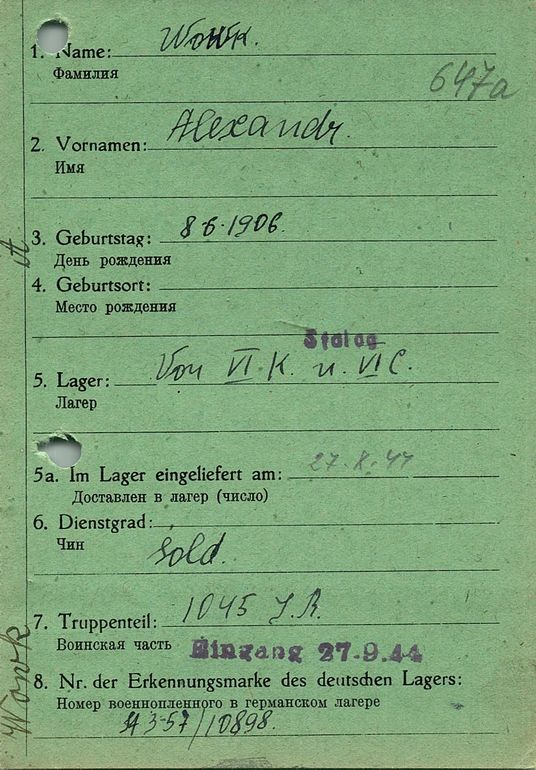 1. Name: Wowk.
Фамилия
647a
2. Vornamen: Alexandr.
Имя
3. Geburtstag: 8·6·1906.
День рождения
4. Geburtsort:
Место рождения
Stalag
5. Lager: Von VI K. n. VI C.
Лагерь
5a. Im Lager eingeliefert am: 27·8·44
Доставлен в лагерь (число)
6. Dienstgrad:
Чин
Sold.
7. Truppenteil: 1045 J.R.
Воинская часть
Eingang 27.9.44
8. Nr. der Erkennungsmarke des deutschen Lagers:
Номер военнопленного в германском лагере
/10898.
Wowk